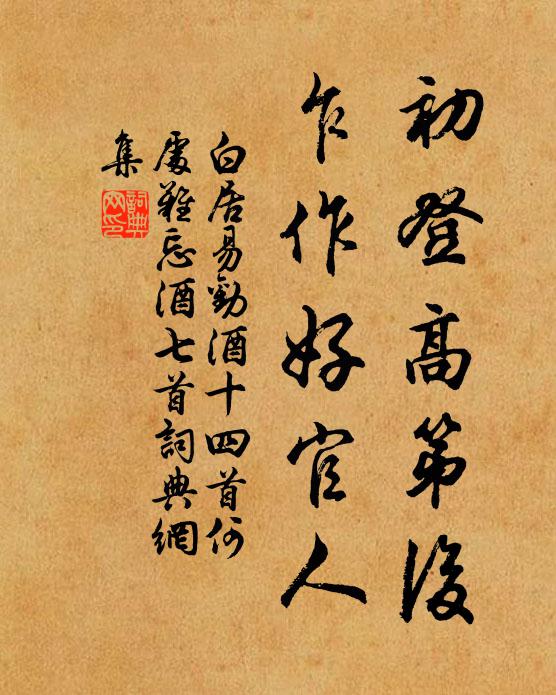 初登高第後
乍作好官人
白居易勸酒十四首何
處難忘酒七首詞典網
集
詞典
网印